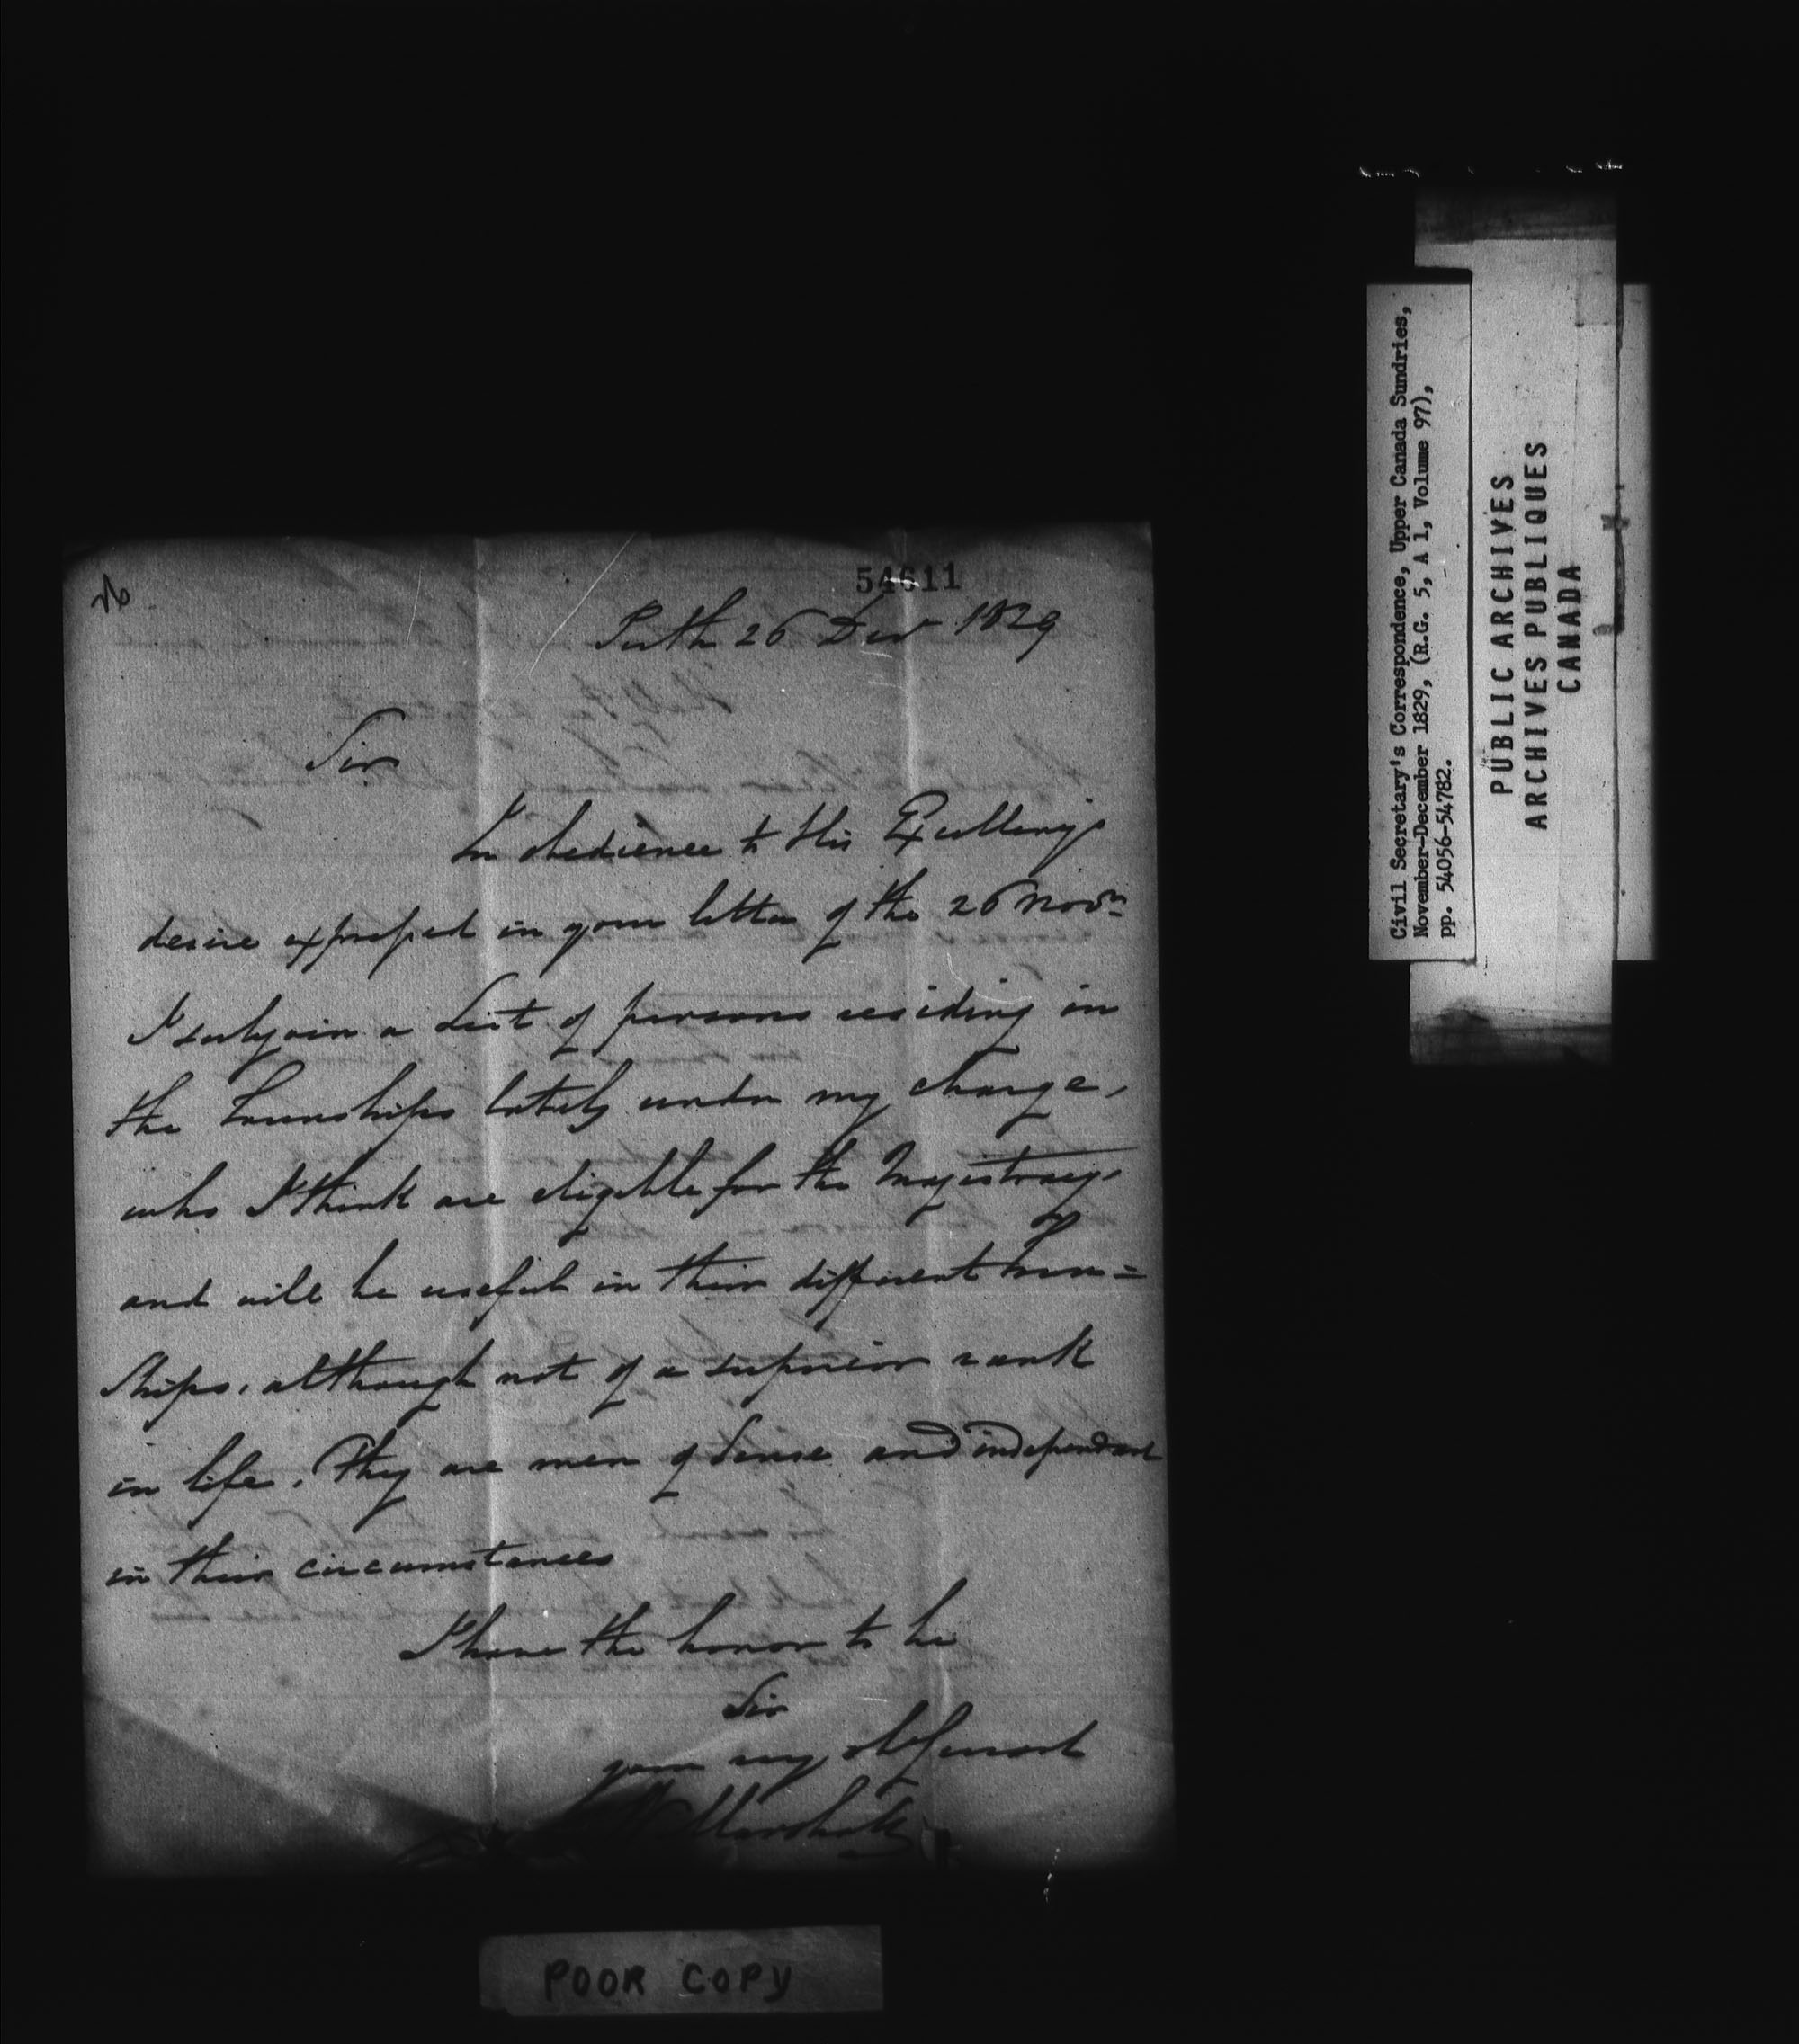 54611
Perth 26 Decr 1829
Sir
In obedience to His Excellency's
desire expressed in your letter of the 26 Novr
I subjoin a List of persons residing in
the Townships lately under my charge,
who I think are eligible for the Magistracy
and will be useful in their different Town=
ships, although not of a superior rank
in life, They are men of Sense and independent
in their circumstances
I have the honor to be
Sir
your very obt Servant
Marshall
POOR COPY
Civil Secretary's Correspondence, Upper Canada Sundries,
November-December 1829, (R.G. 5, A 1, Volume 97),
pp. 54056-54782.
PUBLIC ARCHIVES
ARCHIVES PUBLIQUES
CANADA